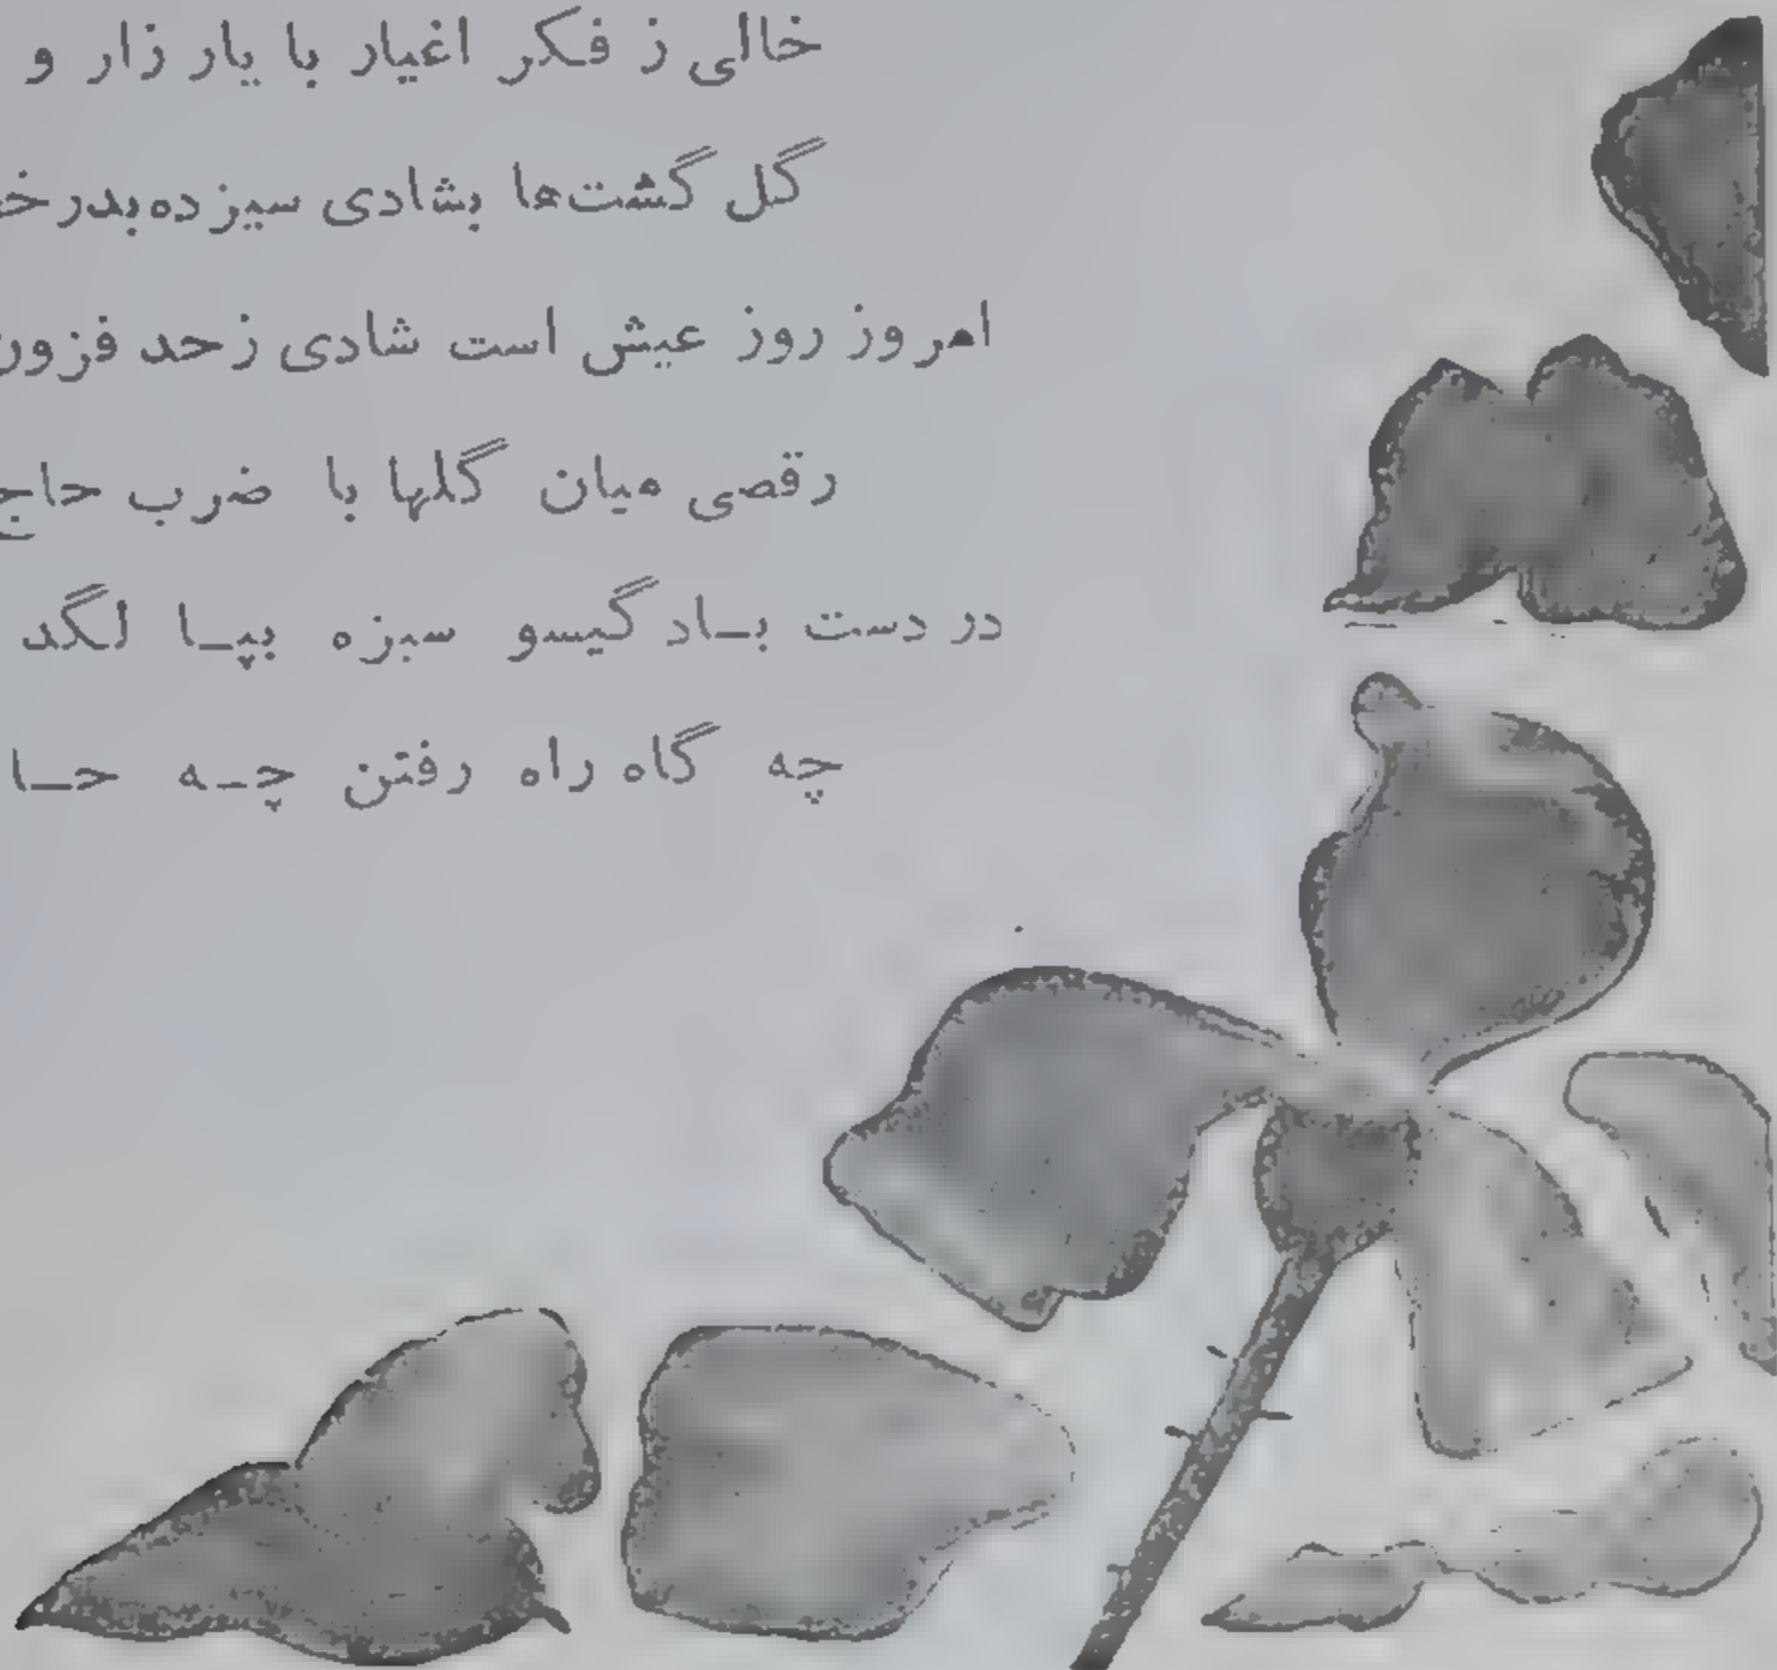 خالی ز فکر اغیار با یار زار و
گل گشت‌ها بشادی سیزده‌بدر
امروز روز عیش است شادی ز حد فزون
رقصی میان گلها با ضرب
در دست بـاد گیسو سبزه بپـا لگد
چه گاه راه رفتن چـه